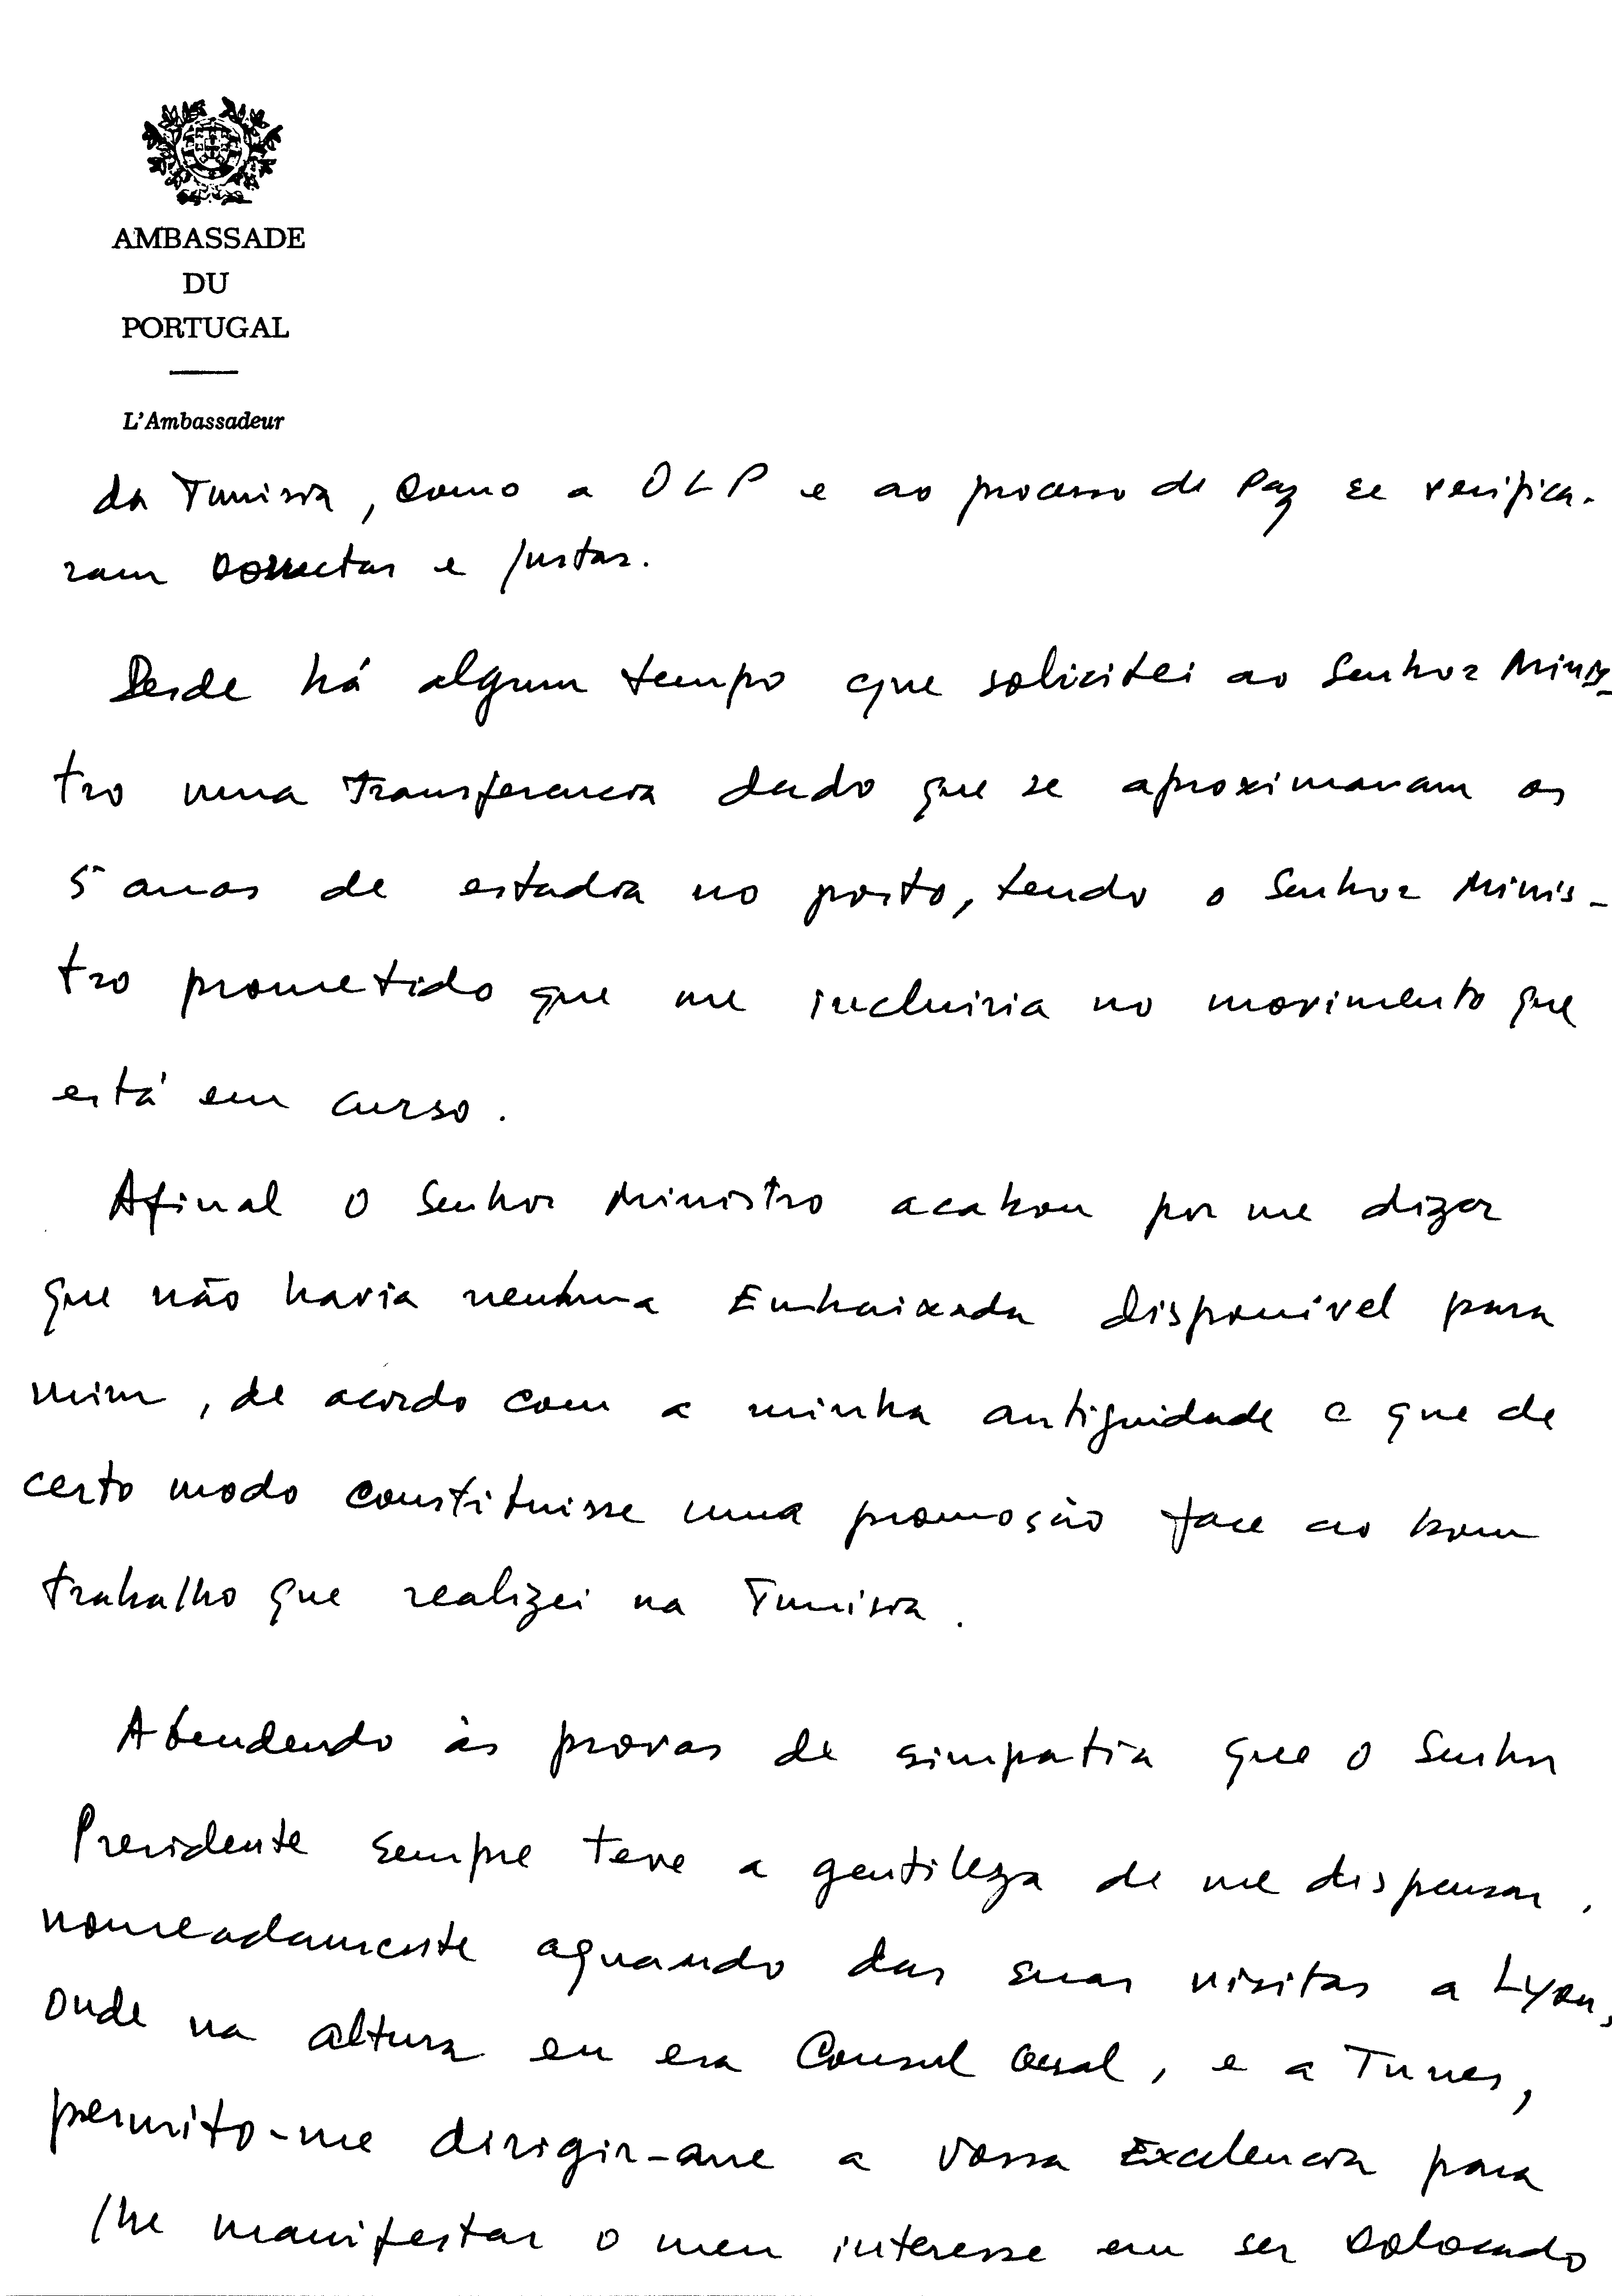 AMBASSADE
DU
PORTUGAL
L'Ambassadeur
da Tunisia, como a OLP e ao processo de Paz se verifica-
ram correctas e justas.
Desde há algum tempo que solicitei ao Senhor Minis-
tro uma transferencia dado que se aproximavam os
5 anos de estadia no posto, tendo o Senhor Minis-
tro prometido que me incluiria no movimento que
está em curso.
Afinal o Senhor Ministro acabou por me dizer
que não havia nenhuma Embaixada disponível para
mim, de acordo com a minha antiguidade e que de
certo modo constituisse uma promoção face ao bom
trabalho que realizei na Tunisia.
Atendendo às provas de simpatia que o Senhor
Presidente sempre teve a gentileza de me dispensar,
nomeadamente aquando das suas visitas a Lyon,
onde na altura eu era Consul Geral, e a Tunes,
permito-me dirigir-me a Vossa Excelencia para
lhe manifestar o meu interesse em ser colocado